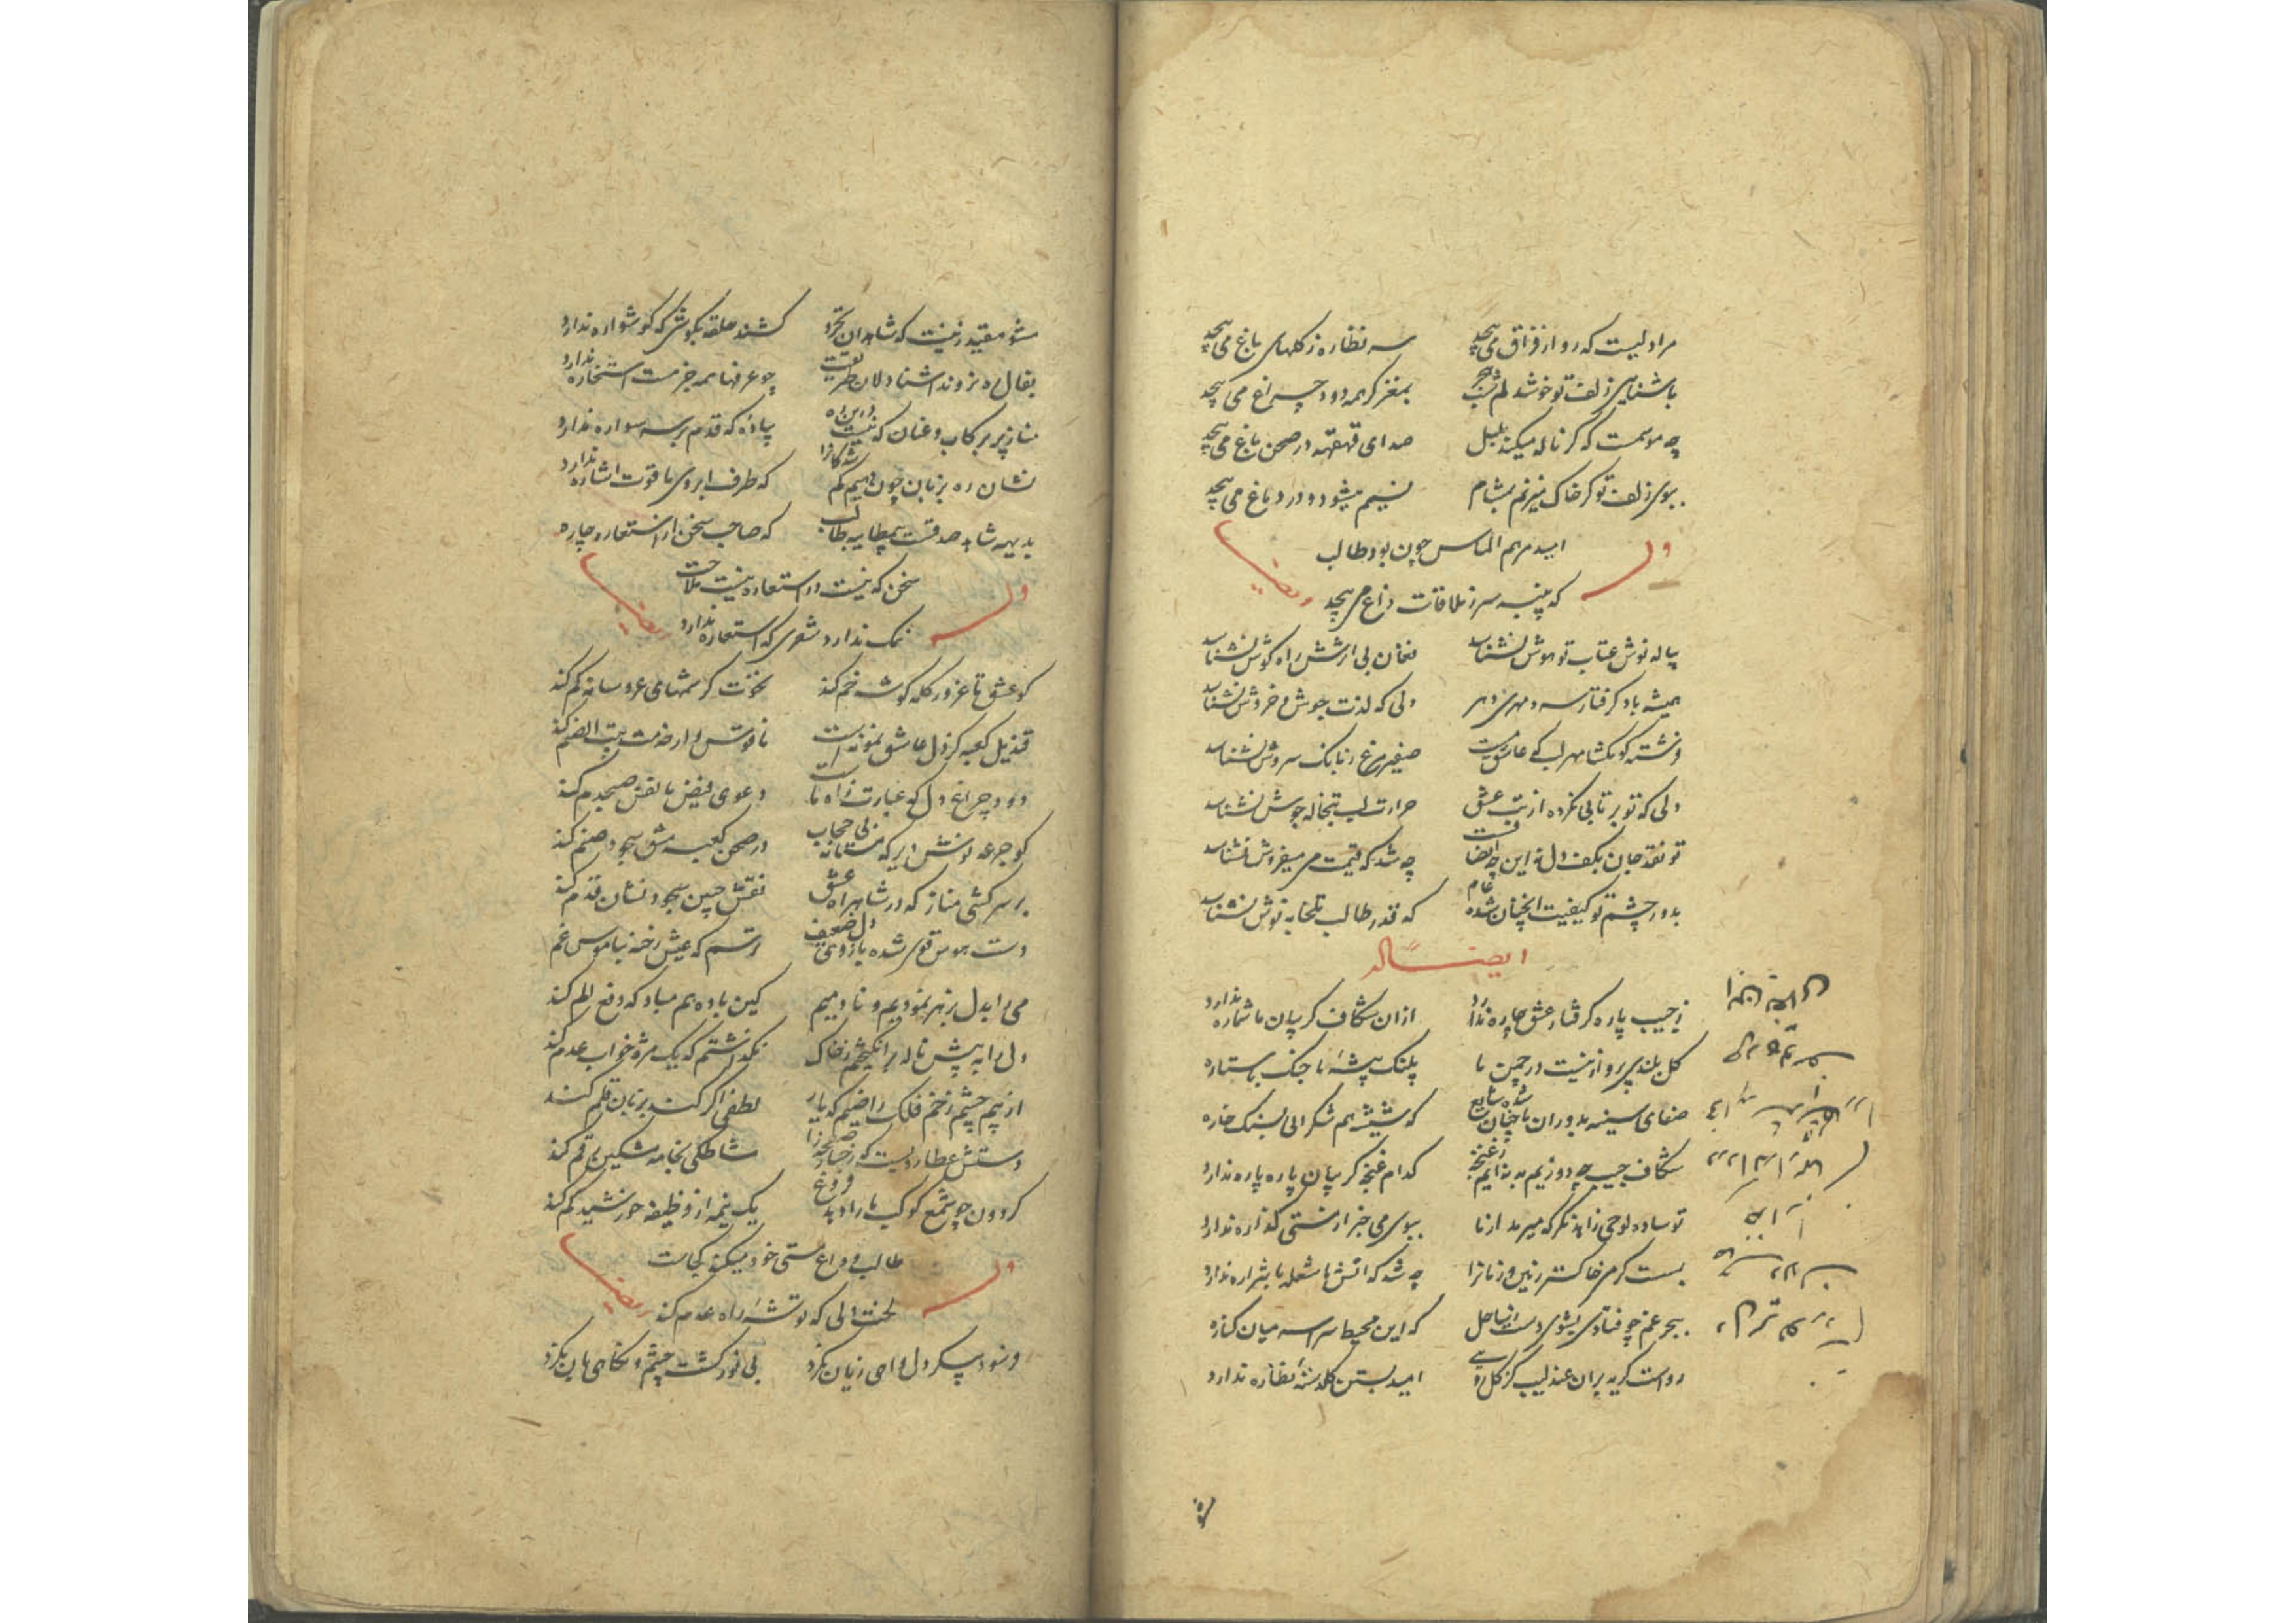 مرا دلیست که رو از فراق می پیچد سر نظاره ز گلهای باغ می پیچد
باشنایی زلف تو خوشدلم بمغز گر همه دود چراغ می پیچد
چه موسمت که گر ناله میکند بلبل صدای قهقهه در صحن باغ می پیچد
ببوی زلف تو گر خاک میزنم بمشام نسیم میشود و در دماغ می پیچد
امید مرهم الماس چون بود طالب
وله ایضا
که پنبه سر ز ملاقات داغ می پیچد
پیاله نوش عتاب تو هوش نشناسد فغان بی اثرش راه گوش نشناسد
همیشه باد گرفتار سرد مهری دهر دلی که لذت جوش و خروش نشناسد
صفیر مرغ ز بانک سروش نشناسد
دلی که تو بر تابی نکرده از تب عشق حرارت لب تبخاله جوش نشناسد
تو نقد جان بکف دل نه این چه انصافست چه شد که قیمت می میفروش نشناسد
بدور چشم تو کیفیت انچنان شده عام که قدر طالب تلخابه نوش نشناسد
ایضا له
ز جیب پاره گرفتار عشق چاره ندارد ازان شکاف گریبان ما شماره ندارد
گل بلند پروا ز نیست در چمن ما پلنگ پیشه ما جنک با ستاره
صفای سینه بدوران ما چنان شده شایع که شیشه هم شکر ابی بسنک خاره
شکاف جیب چه دوزیم به بناییم ز غنچه کدام غنچه گریبان پاره پاره ندارد
تو ساده لوحی زاهد نگر که میرمد از ما ببوی می خبر از مستی گذاره ندارد
بست گرمی خاکستر زمین و زمانرا چه شد که اتش ما شعله یا شراره ندارد
ببحر غم چو فتادی بشوی دست ز ساحل که این محیط سراسر میان کناره
رواست گریه بران عندلیب کز گل رویی امید بستن گلدسته نظاره ندارد
مشو مقید زینت که شاهدان تجرد کشند حلقه بگوشی که گوشواره ندارد
بفال ره نروند اشنا دلان طریقت چو عزمها همه جزمست استخاره ندارد
مناز پر برکاب و عنان که نیست درین راه پیاده که قدم بر سر سواره ندارد
نشان ره بزبان چون دهیم گم شدگانرا که طرف ابروی ما قوت اشاره ندارد
که صاحب سخن از استعاره چاره
سخن که نیست در استعاره نیست ملاحت
وله ایضا
نمک ندارد شعری که استعاره ندارد
کو عشق تا غرور کله گوشه خم کند نخوت کرشمهای عروسانه کم کند
قندیل کعبه کز دل عاشق نمونه است ناقوس وار خدمت بیت الصنم کند
دود چراغ دل که عبارت ز اه ماست دعوی فیض با نفس صبحدم کند
کو جرعه نوش دیر که مستانه بی حجاب در صحن کعبه مشق سجود صنم کند
بر سر کشی مناز که در شاهراه عشق نقش جبین سجود نشان قدم کند
دست هوس قوی شده بازوی دل ضعیف ترسم که عیش رخنه بناموس غم
می را بدل بزهر نمودیم و نادمیم کین باده هم مباد که دفع الم کند
نگذاشتم که یک مژه خواب عدم کند
از بیم چشم زخم فلک راضیم که یار لطفی اگر کند بزبان قلم کند
دستش عطاردیست که رخسار صفحه را مشاطگی بخامه مشکین رقم کند
گردون چو شمع کوکب ما را دهد فروغ یک نیمه از وظیفه خورشید کم کند
طالب وداع هستی خود میکند کجاست
وله ایضا
لخت دلی که توشه راه عدم کند
بی نور گشت چشم و نگاهی بان نکرد